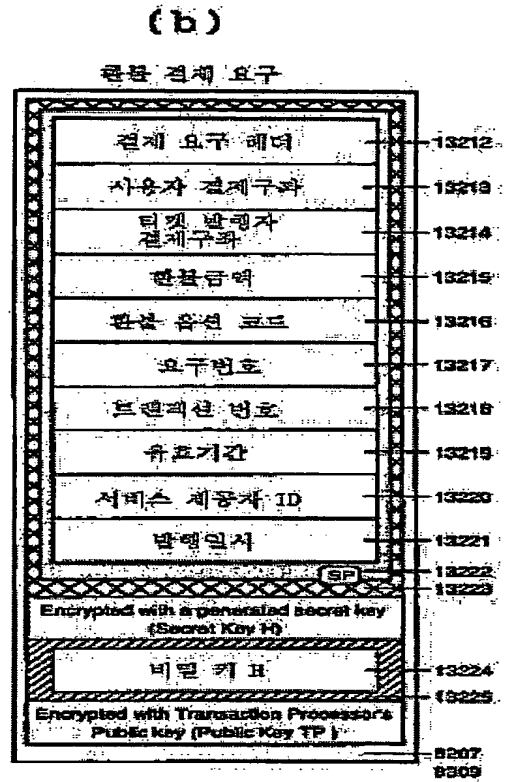 (b)
환불 결제 요구
결제 요구 헤더
13212
사용자 결제구좌
13213
티켓 발행자
결제구좌
13214
환불금액
13215
환불 옵션 코드
13216
요구번호
13217
트랜잭션 번호
13218
유효기간
13219
서비스 제공자 ID
13220
발행일시
13221
SP
13222
13223
Encrypted with a generated secret key
(Secret Key H)
비밀 키 H
13224
13225
Encrypted with Transaction Processor's
Public key (Public Key TP )